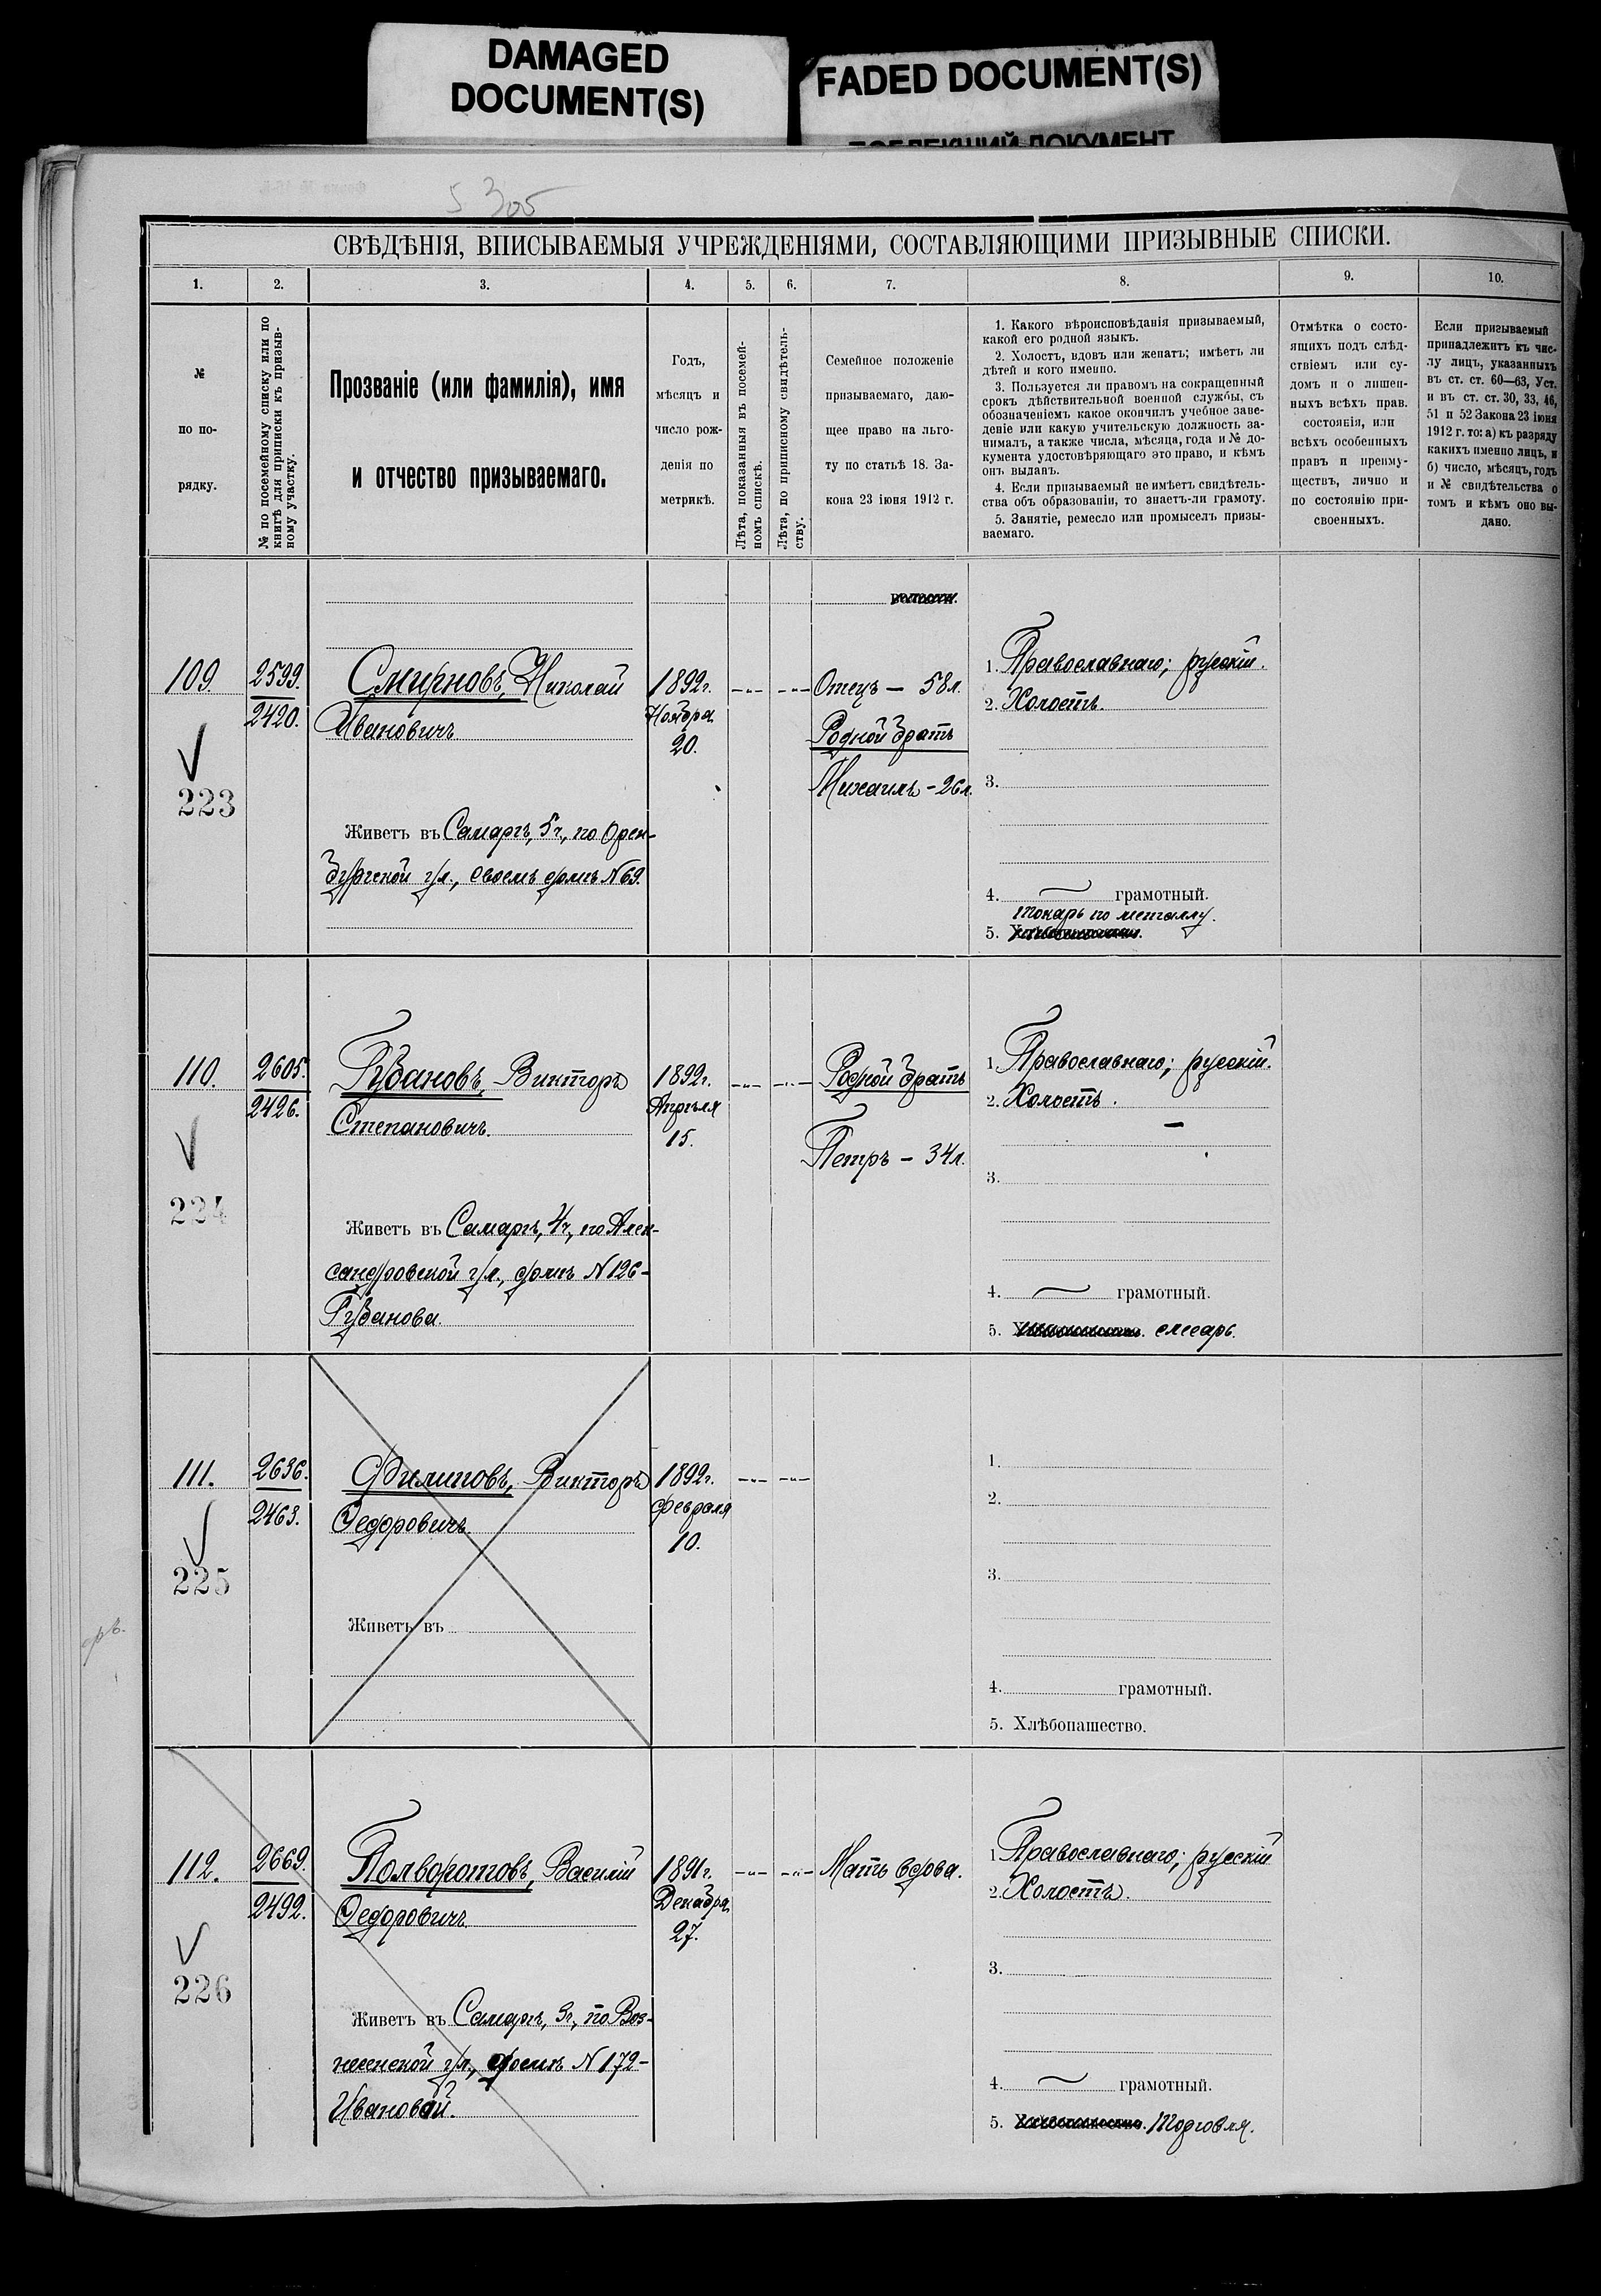 DAMAGED
DOCUMENT(S)
FADED DOCUMENT(S)
5 305
СВѢДѢНІЯ, ВПИСЫВАЕМЫЯ УЧРЕЖДЕНІЯМИ, СОСТАВЛЯЮЩИМИ ПРИЗЫВНЫЕ СПИСКИ.
1. 2. 3. 4. 5. 6. 7. 8. 9. 10.
№
по по-
рядку.
№ по посемейному списку или по
книгѣ для приписки къ призыв-
ному участку.
Прозваніе (или фамилія), имя
и отчество призываемаго.
Годъ,
мѣсяцъ и
число рож-
денія по
метрикѣ.
Лѣта, показанныя въ посемей-
номъ спискѣ.
Лѣта, по приписному свидѣтель-
ству.
Семейное положеніе
призываемаго, даю-
щее право на льго-
ту по статьѣ 18. За-
кона 23 іюня 1912 г.
1. Какого вѣроисповѣданія призываемый,
какой его родной языкъ.
2. Холостъ, вдовъ или женатъ; имѣетъ ли
дѣтей и кого именно.
3. Пользуется ли правомъ на сокращенный
срокъ дѣйствительной военной службы, съ
обозначеніемъ какое окончилъ учебное заве-
деніе или какую учительскую должность за-
нималъ, а также числа, мѣсяца, года и № до-
кумента удостовѣряющаго это право, и кѣмъ
онъ выданъ.
4. Если призываемый не имѣетъ свидѣтель-
ства объ образованіи, то знаетъ-ли грамоту.
5. Занятіе, ремесло или промыселъ призы-
ваемаго.
Отмѣтка о состо-
ящихъ подъ слѣд-
ствіемъ или су-
домъ и о лишен-
ныхъ всѣхъ прав.
состоянія, или
всѣхъ особенныхъ
правъ и преиму-
ществъ, лично и
по состоянію при-
своенныхъ.
Если призываемый
принадлежитъ къ чис-
лу лицъ, указанныхъ
въ ст. ст. 60—63, Уст.
и въ ст. ст. 30, 33, 46,
51 и 52 Закона 23 іюня
1912 г. то: а) къ разряду
какихъ именно лицъ, и
б) число, мѣсяцъ, годъ
и № свидѣтельства о
томъ и кѣмъ оно вы-
дано.
109.
2599.
2420.
223
Смирновъ, Николай
Ивановичъ
Живетъ въ Самарѣ, 5ч, по Орен-
бургской ул., своемъ домѣ N 69.
1892г.
Ноября
20.
Отецъ – 58л.
Родной братъ
Михаилъ – 26л.
1. Православнаго; русскій.
2. Холостъ.
3.
4. грамотный.
токарь по металлу.
5.
110.
2605.
2426.
224
Губановъ, Викторъ
Степановичъ.
Живетъ въ Самарѣ, 4ч, по Алек-
сандровской ул., домѣ N 126 –
Губанова.
1892г.
Апрѣля
15.
Родной братъ
Петръ – 34л.
1. Православнаго; русскій.
2. Холостъ.
3.
4. грамотный.
5. слесарь.
111.
2636.
2463.
225
Филиповъ, Викторъ
Ѳедоровичъ
Живетъ въ
1892г.
Февраля
10.
1.
2.
3.
4. грамотный.
5. Хлѣбопашество.
112.
2669.
2492.
226
Полворотовъ, Василій
Ѳедоровичъ
Живетъ въ Самарѣ, 3ч, по Воз-
несенской ул., домѣ N 172 –
Ивановой.
1891г.
Декабря
27.
Мать вдова.
1. Православнаго; русскій
2. Холостъ.
3.
4. грамотный.
5. Торговля.